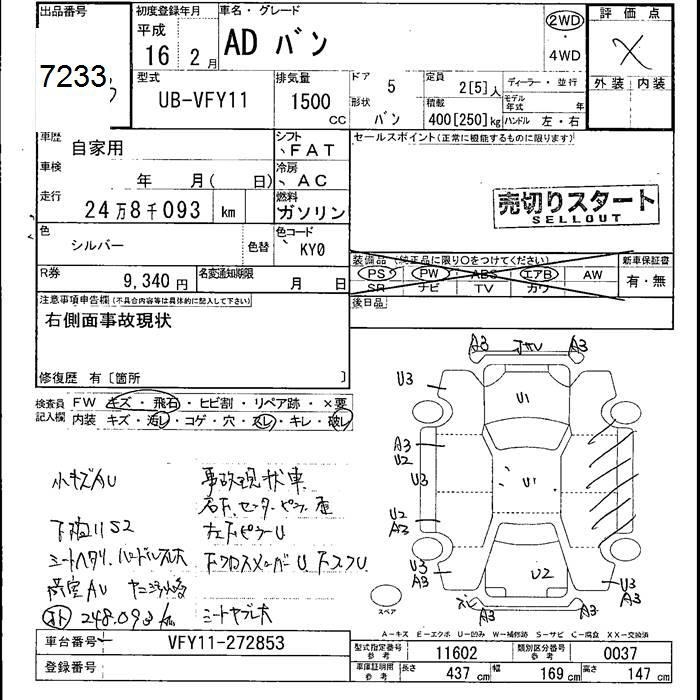 出品番号
7233
初度登録年月
平成
16 2月
車名・グレード
AD バン
2WD
4WD
評価点
X
外装 内装
型式
UB-VFY11
排気量
1500
CC
ドア
5
形状
バン
定員
2[5]人
積載
400[250]kg
ディーラー・並行
モデル年式 年
ハンドル 左・右
車歴
自家用
シフト
FAT
車検
年 月( 日)
冷房
AC
走行
24万8千093 km
燃料
ガソリン
色
シルバー
色替
色コード
KY0
R券
9,340円
名変通知期限
月 日
セールスポイント(正常に機能するものに限ります)
売切りスタート
SELLOUT
装備品(純正品に限り○をつけてください)
PS PW ABS エアB AW
SR ナビ TV カワ
新車保証書
有・無
後日品
注意事項申告欄(不具合内容等は具体的に記入して下さい)
右側面事故現状
修復歴 有[箇所 ]
検査員記入欄
FW キズ・飛石・ヒビ割・リペア跡・×要
内装 キズ・汚レ・コゲ・穴・スレ・キレ・破レ
小キズAU
事故現状車
下廻リS2
シートヘタリ、ハンドルスレ大
荷室AU
248.093km
シートヤブレ大
A3 A3
U3
U1
A3
U2
U3
U1
U2
A3
U3
A3
U2
U3
A3
A3 A3
スペア
A－キズ E－エクボ U－凹み W－補修跡 S－サビ C－腐食 XX－交換済
車台番号
VFY11-272853
登録番号
型式指定番号
参考
11602
類別区分番号
参考
0037
車庫証明用
参考
長さ 437 cm 幅 169 cm 高さ 147 cm